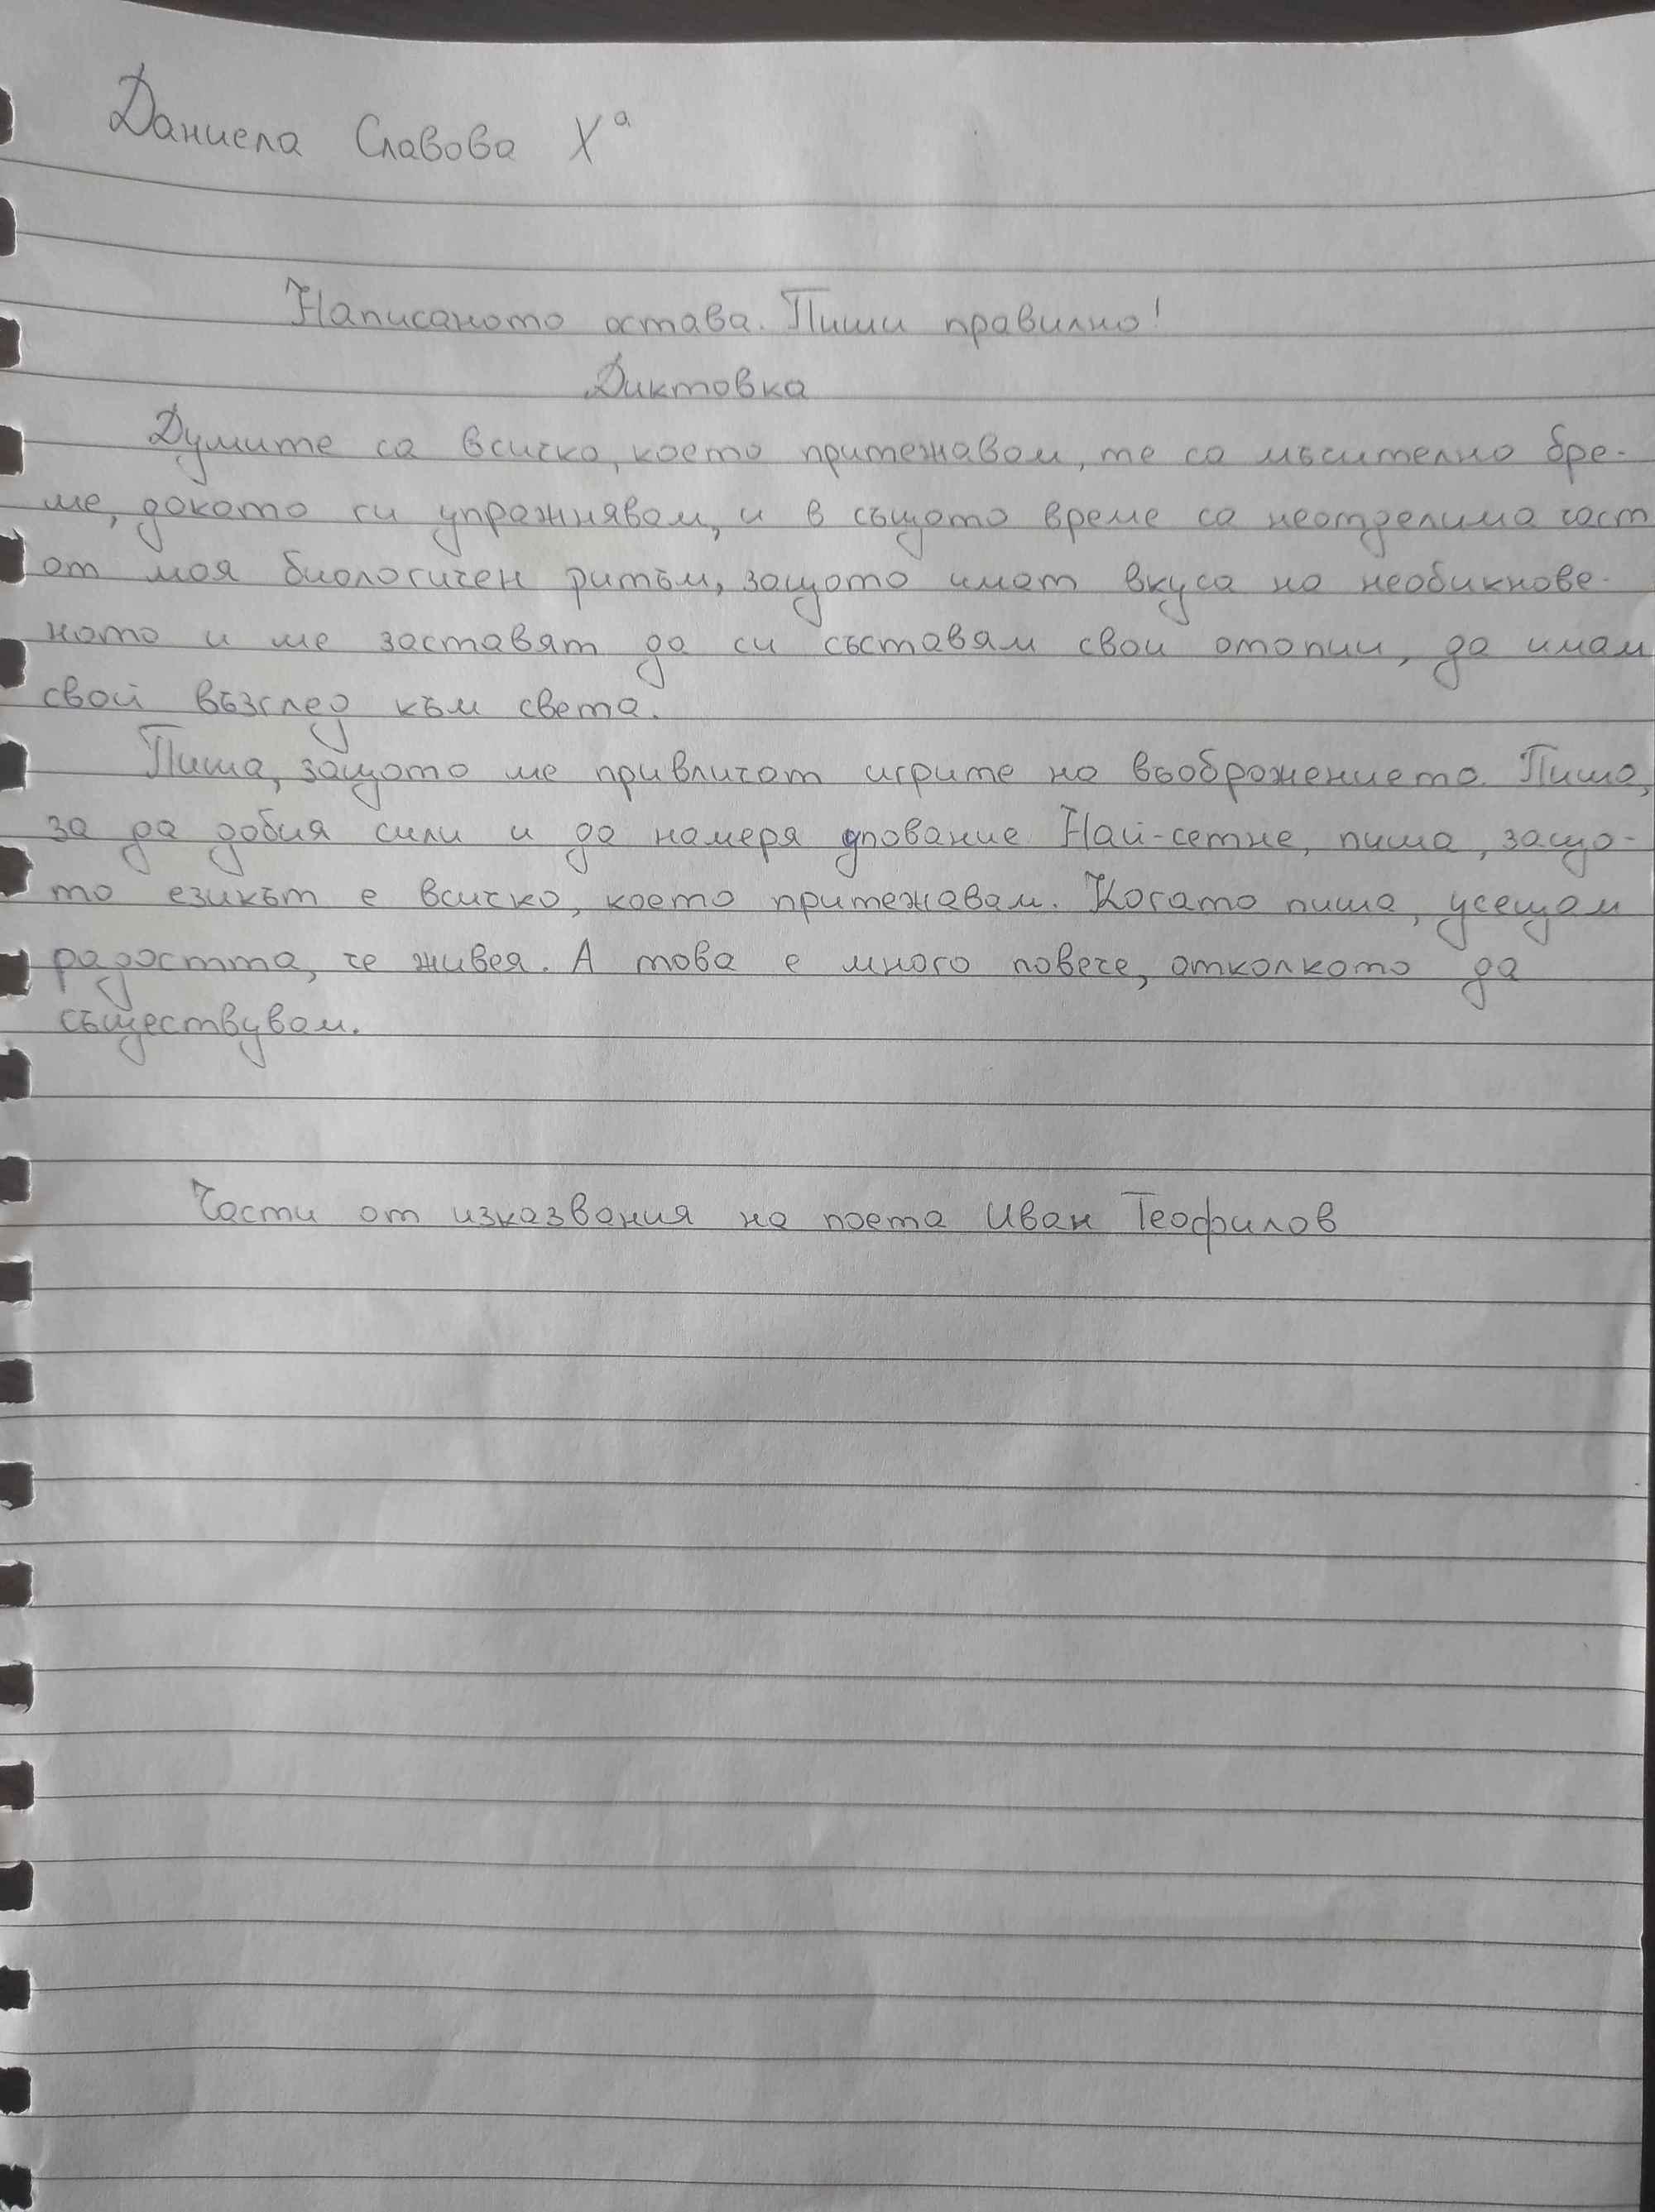 Даниела Славова Xа
Написаното остава. Пиши правилно!
Диктовка
Думите са всичко, което притежавам, те са мъчително бре-
ме, докато ги упражнявам, и в същото време са неотделима част
от моя биологичен ритъм, защото имат вкуса на необикнове-
ното и ме заставят да си съставям свои отопии, да имам
свой възглед към света.
Пиша, защото ме привличат игрите на въображението. Пиша,
за да добия сили и да намеря упование. Най-сетне, пиша, защо-
то езикът е всичко, което притежавам. Когато пиша, усещам
радостта, че живея. А това е много повече, отколкото да
съществувам.
Части от изказвания на поета Иван Теофилов